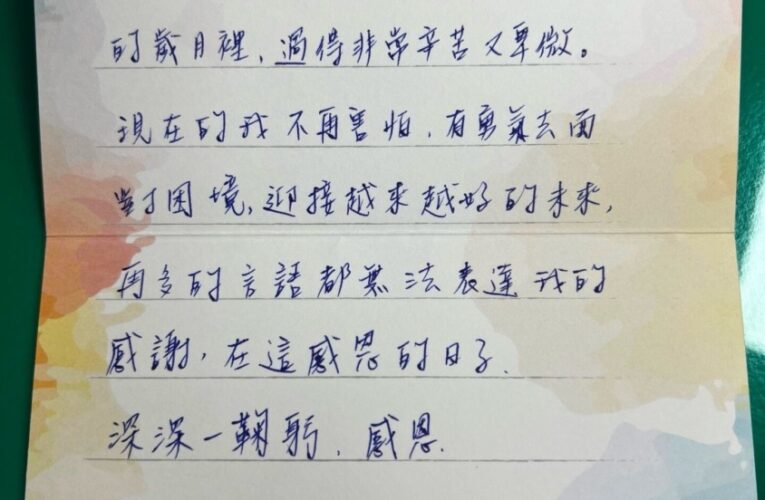 的歲月裡，過得非常辛苦又卑微。
現在的我不再害怕，有勇氣去面
對困境，迎接越來越好的未來，
再多的言語都無法表達我的
感謝，在這感恩的日子、
深深一鞠躬、感恩.